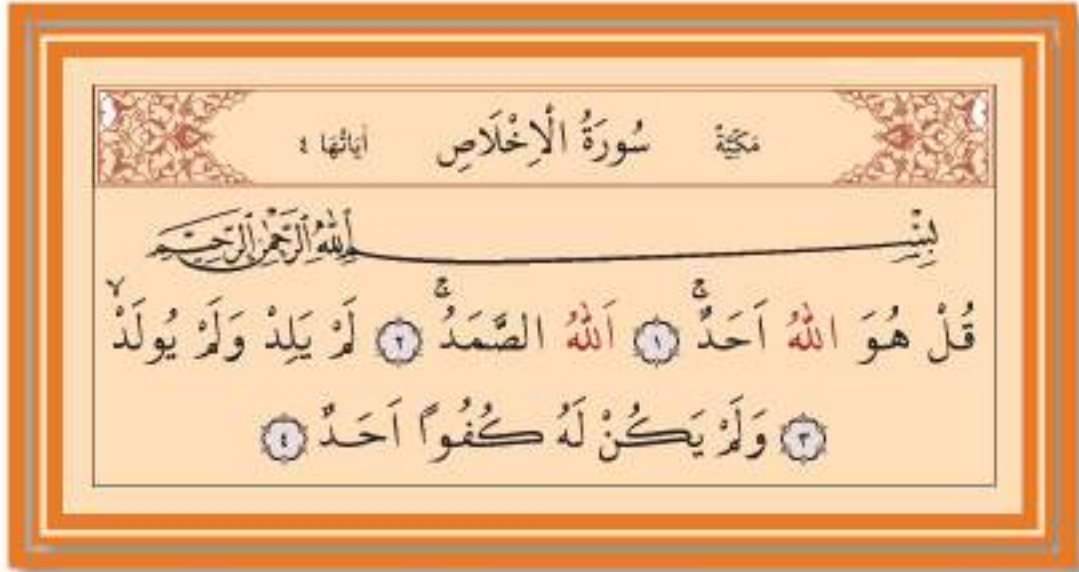 مَكِّيَّةٌ سُورَةُ الْاِخْلَاصِ اٰيَاتُهَا ٤
بِسْمِ اللّٰهِ الرَّحْمٰنِ الرَّحٖيمِ
قُلْ هُوَ اللّٰهُ اَحَدٌۚ ﴿١﴾ اَللّٰهُ الصَّمَدُۚ ﴿٢﴾ لَمْ يَلِدْ وَلَمْ يُولَدْۙ
﴿٣﴾ وَلَمْ يَكُنْ لَهُ كُفُواً اَحَدٌ ﴿٤﴾